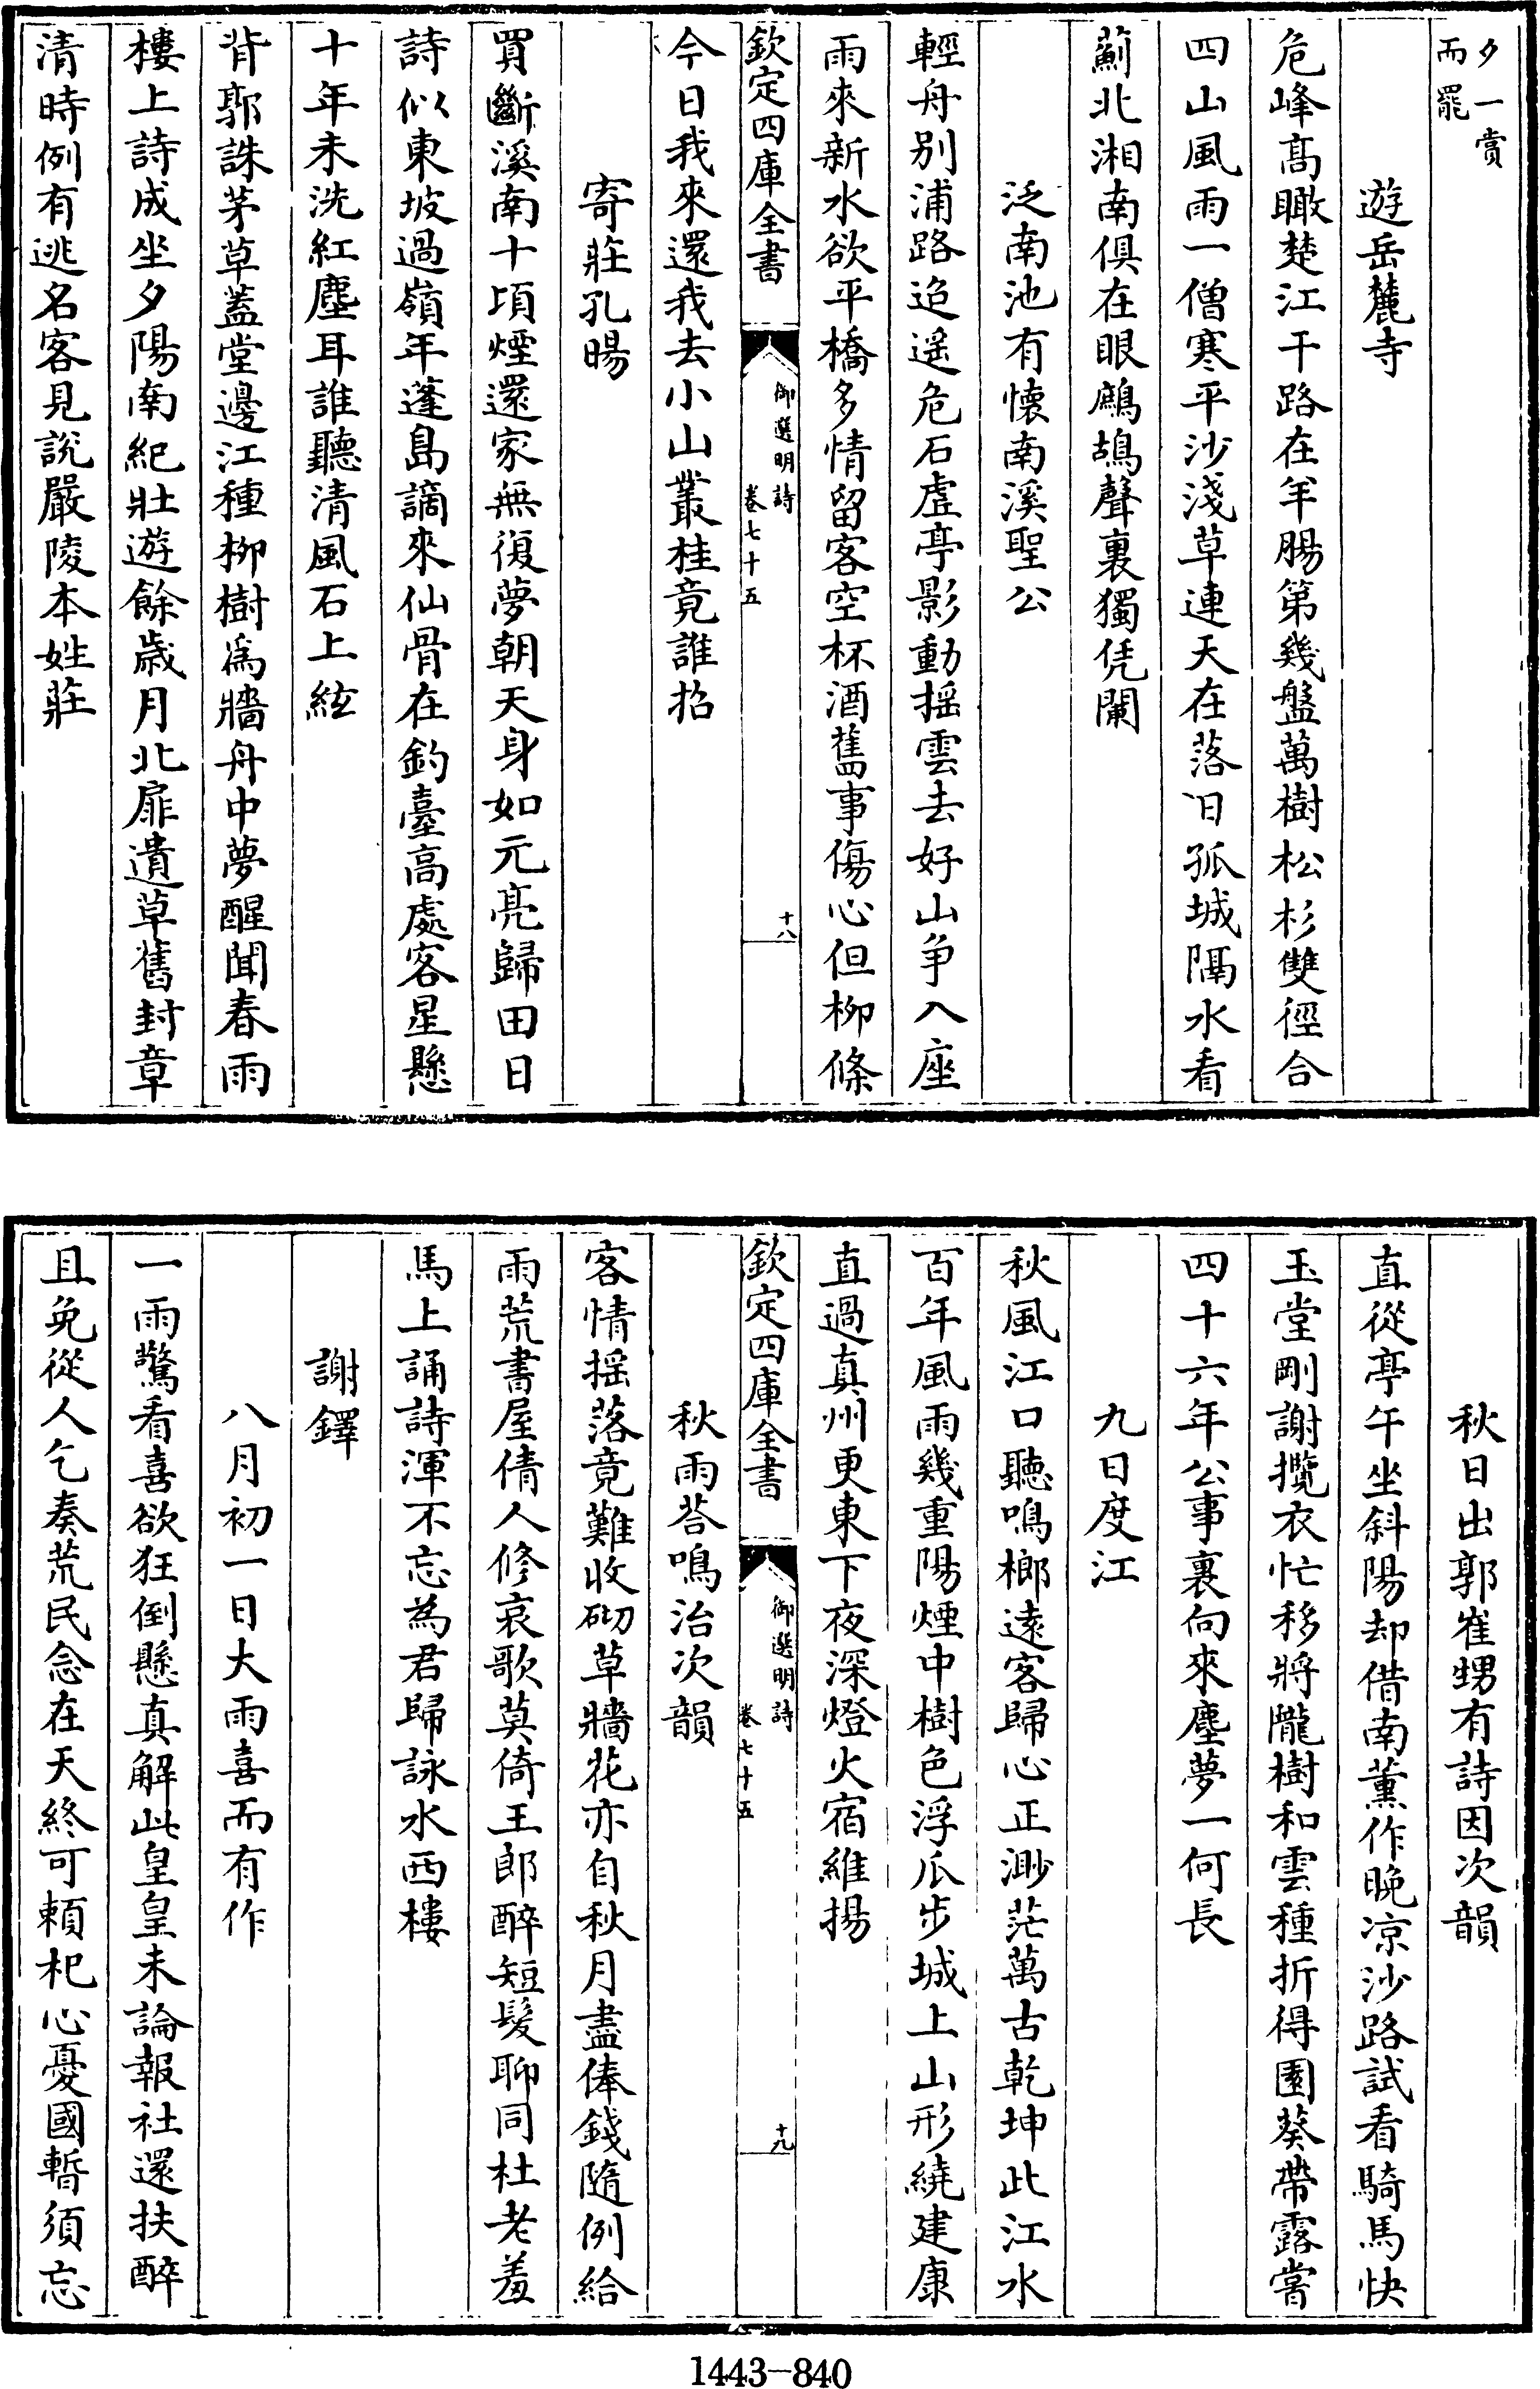 夕一賞
而罷
遊岳麓寺
危峰髙瞰楚江干路在羊腸第幾盤萬樹松杉雙徑合
四山風雨一僧寒平沙淺草連天在落日孤城隔水看
薊北湘南俱在眼鷓鴣聲裏獨凭闌
泛南池有懐南溪聖公
輕舟别浦路迢遥危石虚亭影動揺雲去好山争入座
雨來新水欲平橋多情留客空杯酒舊事傷心但柳條
欽定四庫全書
御選明詩
卷七十五
十八
今日我來還我去小山叢桂竟誰招
寄莊孔暘
買斷溪南十頃煙還家無復夢朝天身如元亮歸田日
詩似東坡過嶺年蓬島謫來仙骨在釣臺高處客星懸
十年未洗紅塵耳誰聽清風石上絃
背郭誅茅草蓋堂邊江種柳樹為牆舟中夢醒聞春雨
樓上詩成坐夕陽南紀壯遊餘歳月北扉遺草舊封章
清時例有逃名客見說嚴陵本姓莊
秋日出郭崔甥有詩因次韻
直從亭午坐斜陽却借南薰作晚凉沙路試看騎馬快
玉堂剛謝攬衣忙移將隴樹和雲種折得園葵帶露嘗
四十六年公事裏向來塵夢一何長
九日度江
秋風江口聽鳴榔遠客歸心正渺茫萬古乾坤此江水
百年風雨幾重陽煙中樹色浮瓜步城上山形繞建康
直過真州更東下夜深燈火宿維揚
欽定四庫全書
御選明詩
卷七十五
十九
秋雨荅鳴治次韻
客情揺落竟難收砌草牆花亦自秋月盡俸錢隨例給
雨荒書屋倩人修哀歌莫倚王郎醉短髮聊同杜老羞
馬上誦詩渾不忘為君歸詠水西樓
謝鐸
八月初一日大雨喜而有作
一雨驚看喜欲狂倒懸真解此皇皇未論報社還扶醉
且免從人乞奏荒民念在天終可賴杞心憂國暫須忘
1443-840